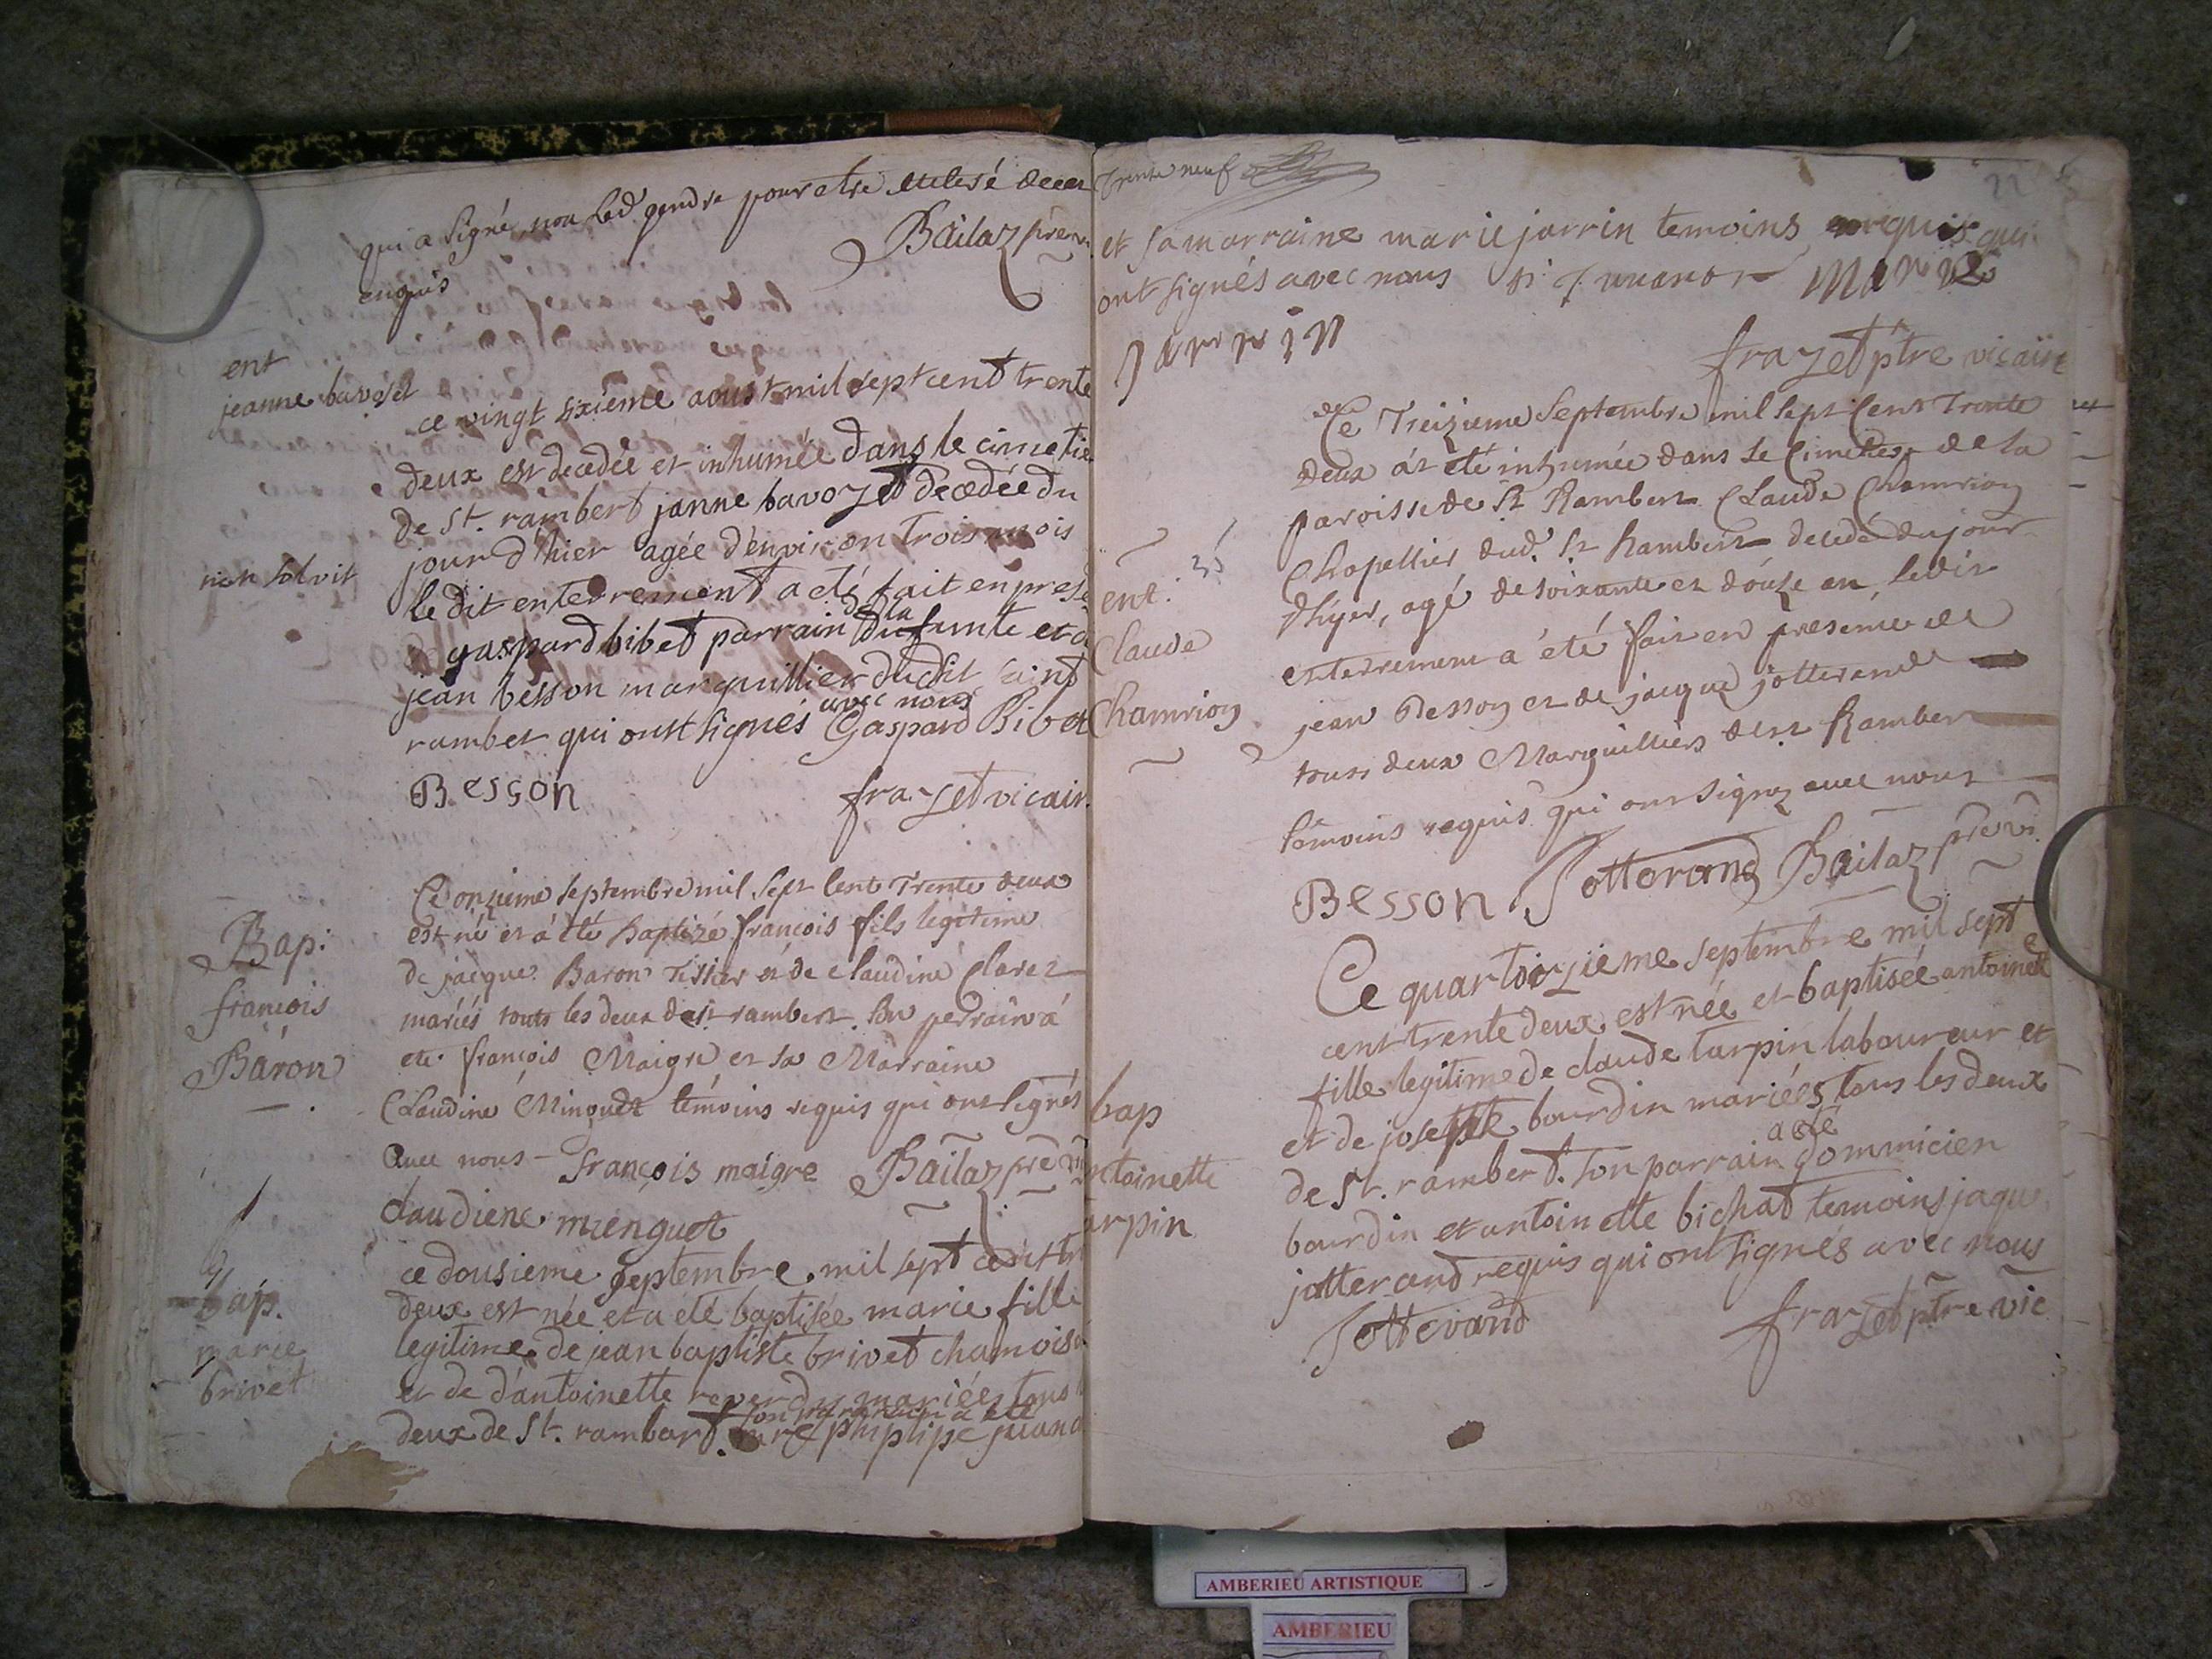 qui a signé, non led. gendre pour etre illitesé de ce
enquis
Bailaz prê vi.
ent
jeanne bavozet
ce vingt sixiéme aoust mil sept cent trente
deux est decedée et inhumée dans le cimetie
de St. rambert janne bavozet decedée du
jour d'hier agée d'environ trois mois
non solvit
le dit enterrement a eté fait en prese
gaspard bibet parrain de la defunte et d
jean besson marguillier dudit saint
rambet qui ont signés avec nous Gaspard Bibet
Besçon
frazet vicair
Bap:
francois
Baron
Ce onzieme septembre mil sept cent trente deux
est né et à été baptizé francois fils legitime
de jacque Baron tissier et de claudine Claret
mariés touts les deux de st rambert. Son perrain à
eté francois Maigre et sa Marraine
Claudine Minguet témoins requis qui ont signés
avec nous françois maigre Bailaz prê vi
claudiene mienguet
bap.
marie
brivet
ce dousieme septembre mil sept cent tr
deux est née et a eté baptisée marie fille
legitime de jean baptiste brivet chamois
et de d'antoinette reverdy mariées tous
deux de St. rambert son parrain a eté
phiplipe juan
trente neuf
22
et sa marraine marie jarrin temoins requis qui
ont signés avec nous Marie
jarrin
frazet ptre vicaire
ent. 35
Claude
Chamrion
Ce Treizieme Septembre mil sept Cent Trente
deux à été inhumée dans le Cimetiere de la
paroisse de St Rambert Claude Chamrion
Chapellier dud. St Rambert decedé du jour
d'hyer, agé de soixante et douze an, ledit
enterrement à été fait en presence de
jean Besson et de jacque jotterand
tous deux Marguilliers de st Rambert
témoins requis qui ont signez avec nous
Besson Jotterand Bailaz prê vi.
bap
antoinette
turpin
Ce quartoizieme septembre mil sept
cent trente deux est née et baptisée antoinette
fille legitime de claude turpin laboureur et
et de josephte bourdin mariées tous les deux
de St. rambert. son parrain a eté dommicien
bourdin et antoinette bichat temoins jaque
jotterand requis qui ont signés avec nous
Jotterand frazet ptre vic
AMBERIEU ARTISTIQUE
AMBERIEU